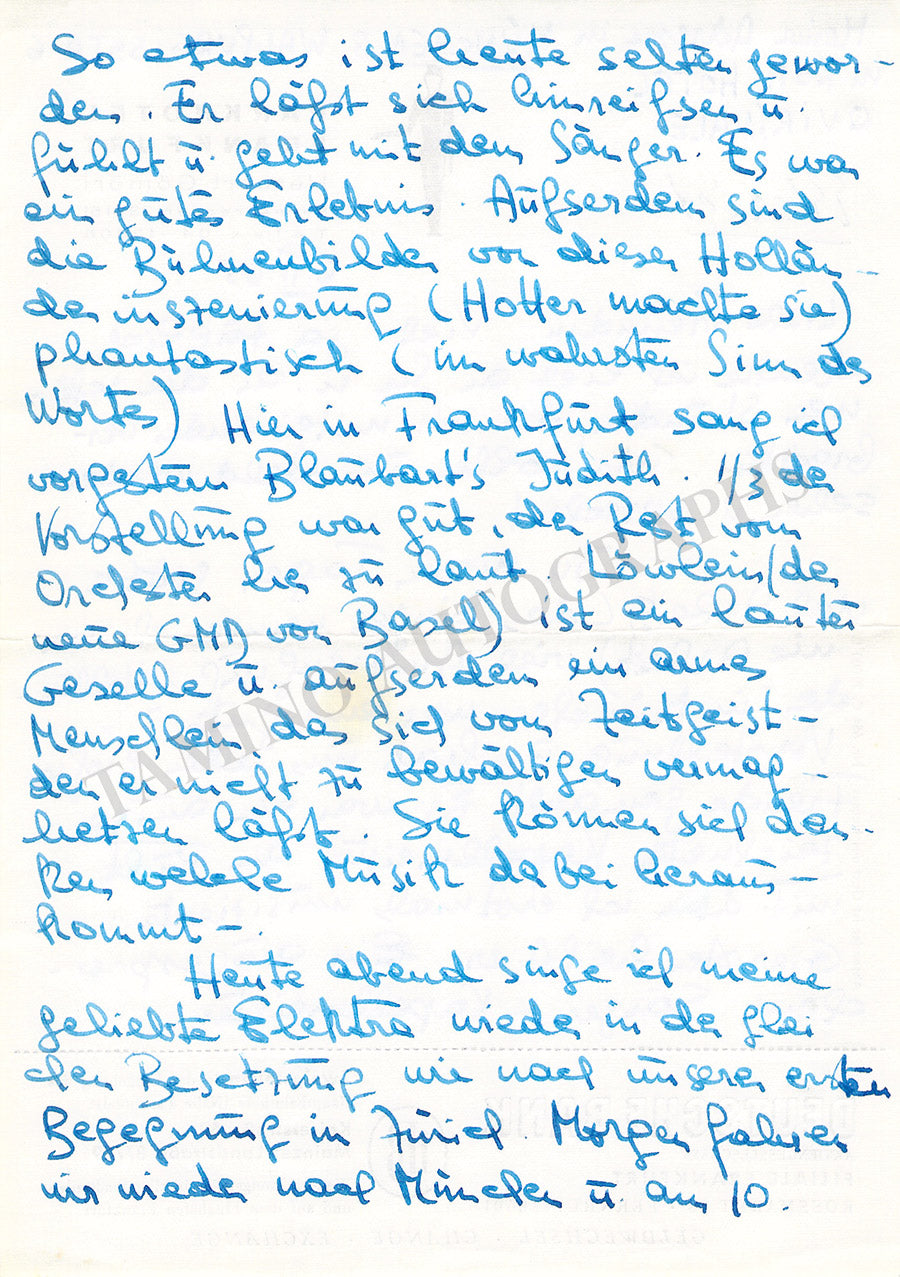 So etwas ist heute selten gewor-
den. Er läßt sich hinreißen u.
fühlt u. geht mit dem Sänger. Es war
ein gutes Erlebnis. Außerdem sind
die Bühnenbilder von dieser Hollän-
derinszenierung (Hotter machte sie)
phantastisch (im wahrsten Sinn des
Wortes) Hier in Frankfurt sang ich
vorgestern Blaubart's Judith. 1/3 der
Vorstellung war gut, der Rest vom
Orchester her zu laut. Löwlein (der
neue GMD von Basel) ist ein lauter
Geselle u. außerdem ein armes
Menschlein das sich vom Zeitgeist –
den er nicht zu bewältigen vermag –
hetzen läßt. Sie können sich den-
ken, welche Musik dabei heraus-
kommt –.
Heute abend singe ich meine
geliebte Elektra wieder in der glei
chen Besetzung wie nach unserer ersten
Begegnung in Zürich. Morgen fahren
wir wieder nach München u. am 10.
TAMINO AUTOGRAPHS
GELDWECHSEL · CHANGE · EXCHANGE